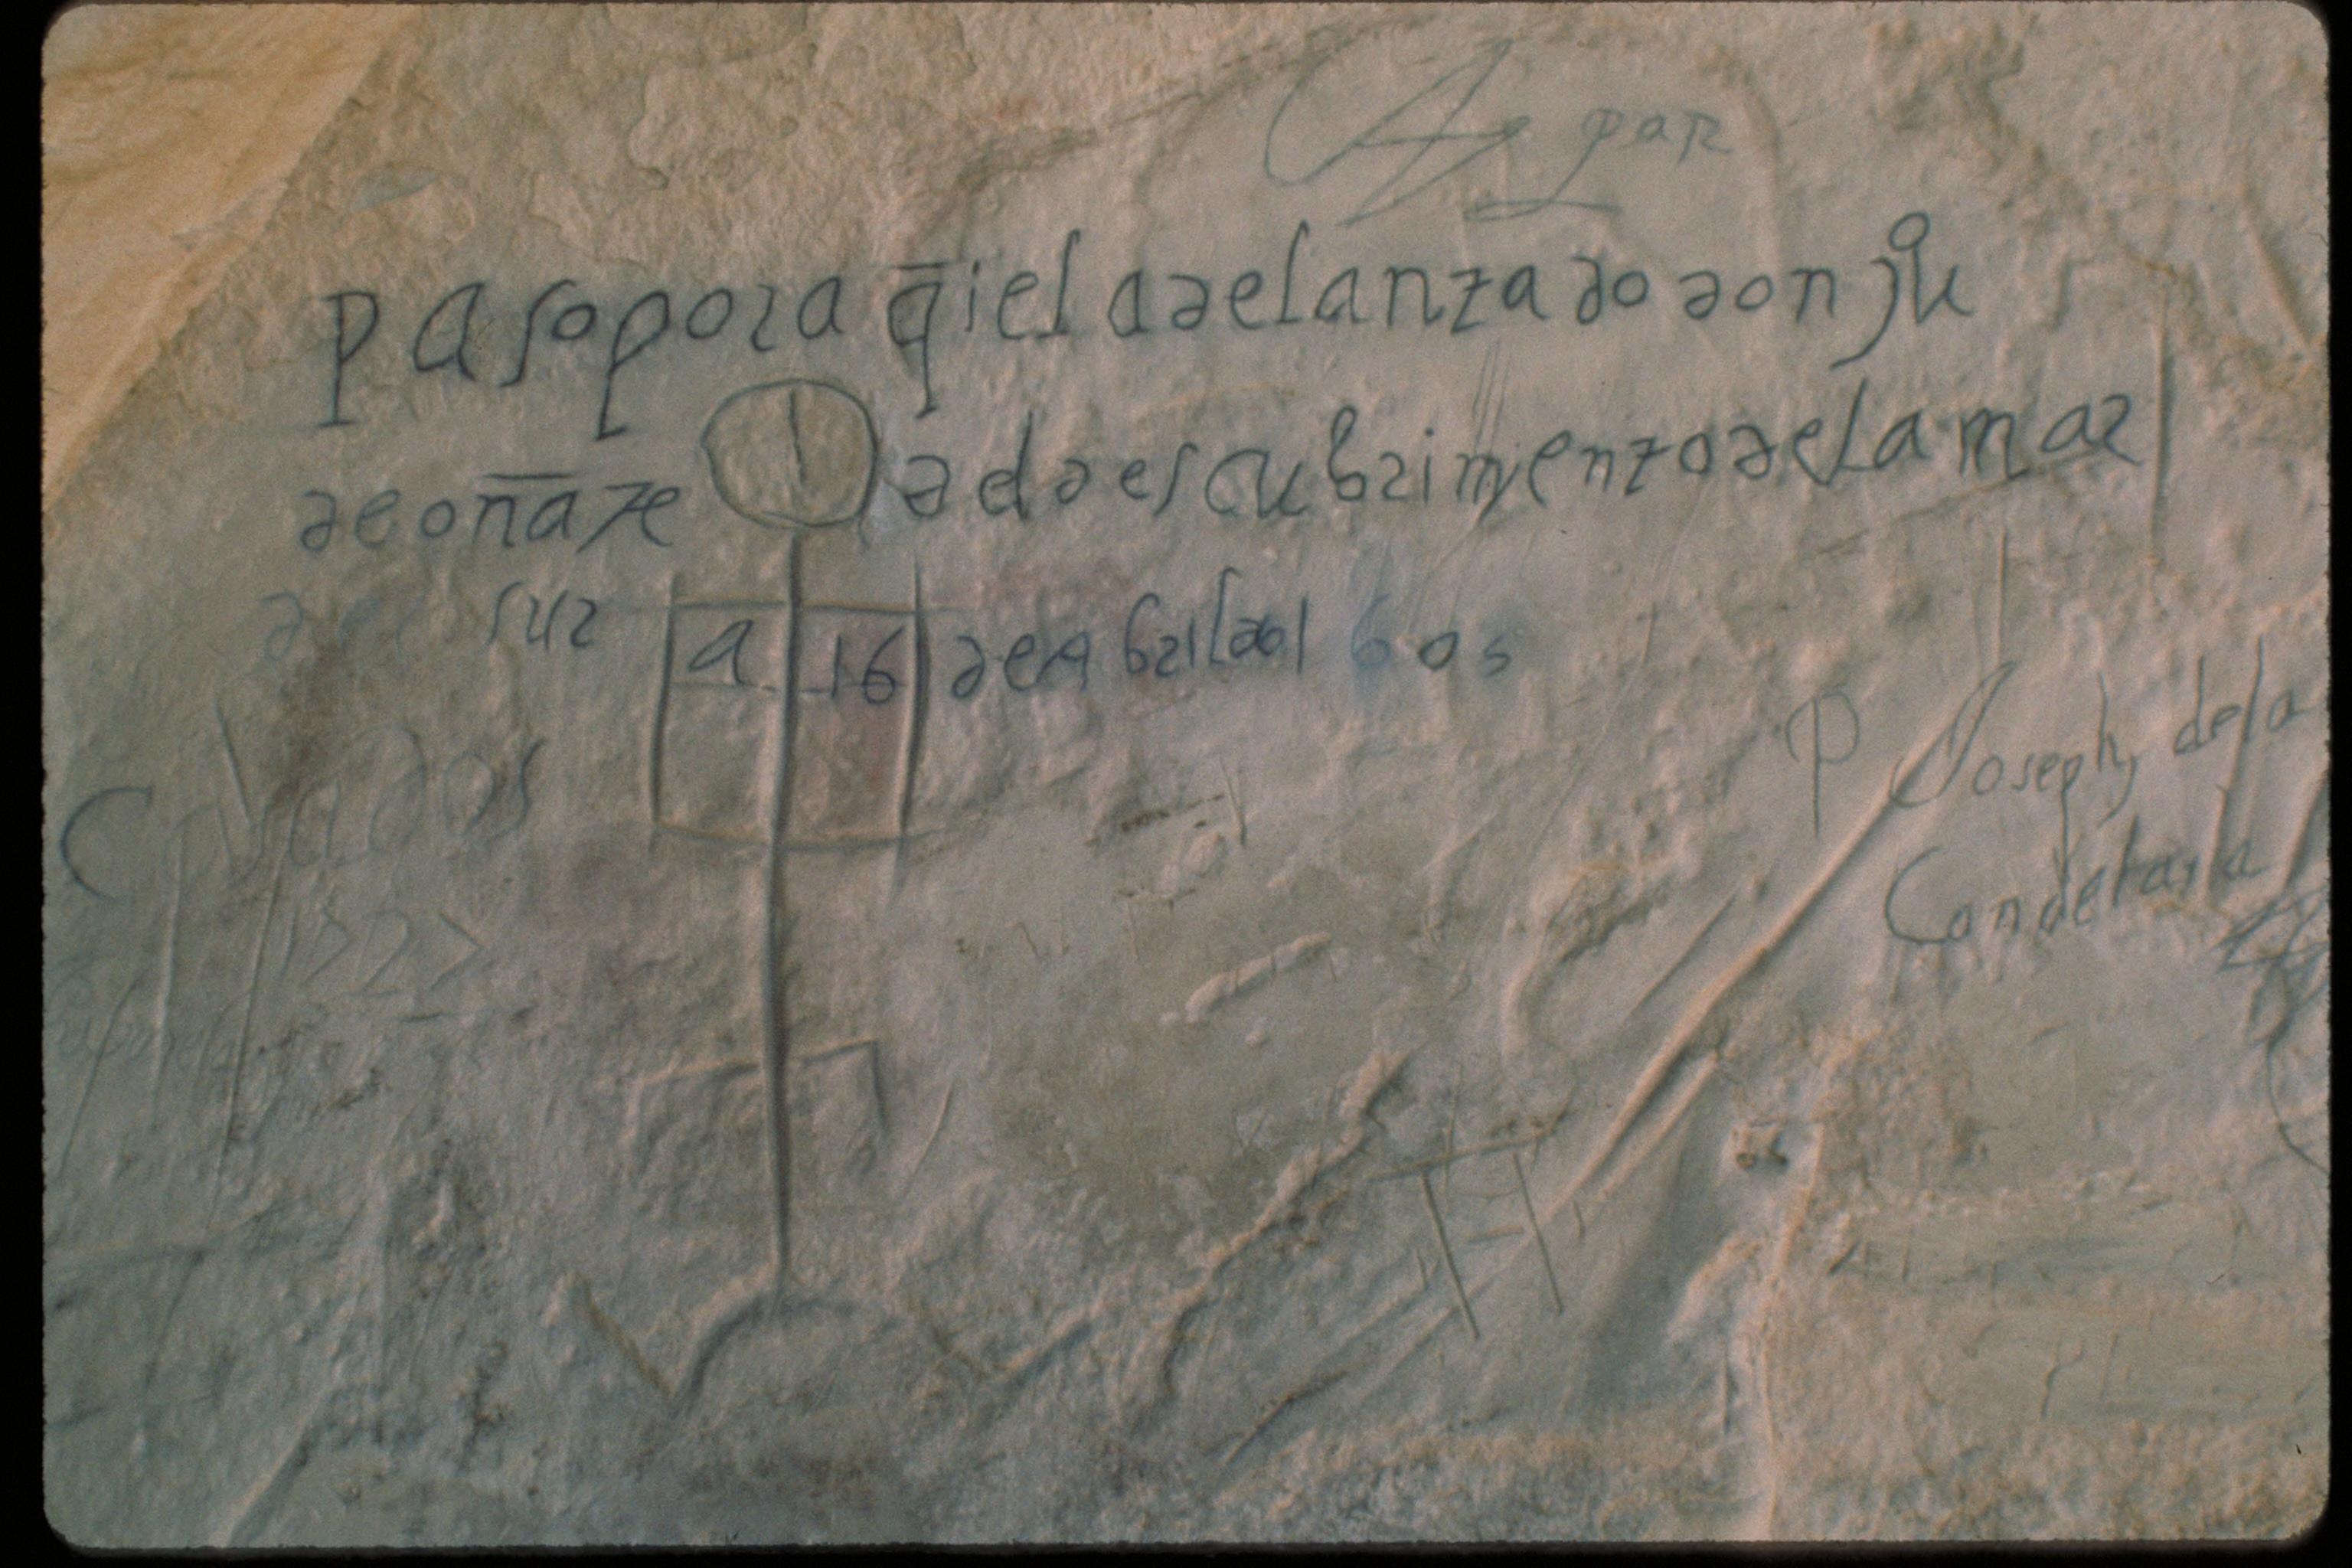 Ag par
pasopora q̄iel adelantado don juº
de oñate d del descubrimiento de la mar
del sur a 16 de Abril del 1605
P Joseph de la
Candelaria